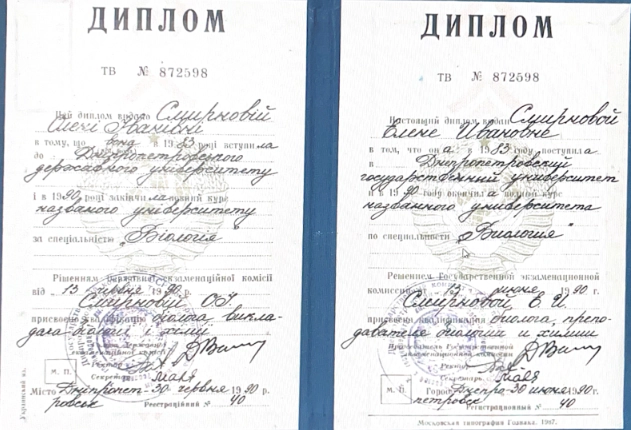 ДИПЛОМ
ТВ № 872598
Цей диплом видано Смирновій
Олені Іванівні
в тому, що вона в 1983 році вступила
до Дніпропетровського
державного університету
і в 1990 році закінчила повний курс
названого університету
за спеціальністю „Біологія“
Рішенням Державної екзаменаційної комісії
від 13 червня 1990 р.
Смирновій О.І.
присвоєно кваліфікацію біолога, викла-
дача біології і хімії
Ректор
Секретар
М. П.
Місто Дніпропет- 30 червня 1990 р.
ровськ Реєстраційний № 40
ДИПЛОМ
ТВ № 872598
Настоящий диплом выдан Смирновой
Елене Ивановне
в том, что она в 1983 году поступила
в Днепропетровский
государственный университет
и в 1990 году окончила полный курс
названного университета
по специальности „Биология“
Решением Государственной экзаменационной
комиссии от 13 июня 1990 г.
Смирновой Е.И.
присвоена квалификация биолога, препо-
давателя биологии и химии
Председатель Государственной
экзаменационной комиссии
Ректор
Секретарь
М. П.
Город Днепро- 30 июня 1990 г.
петровск Регистрационный № 40
Московская типография Гознака. 1987.